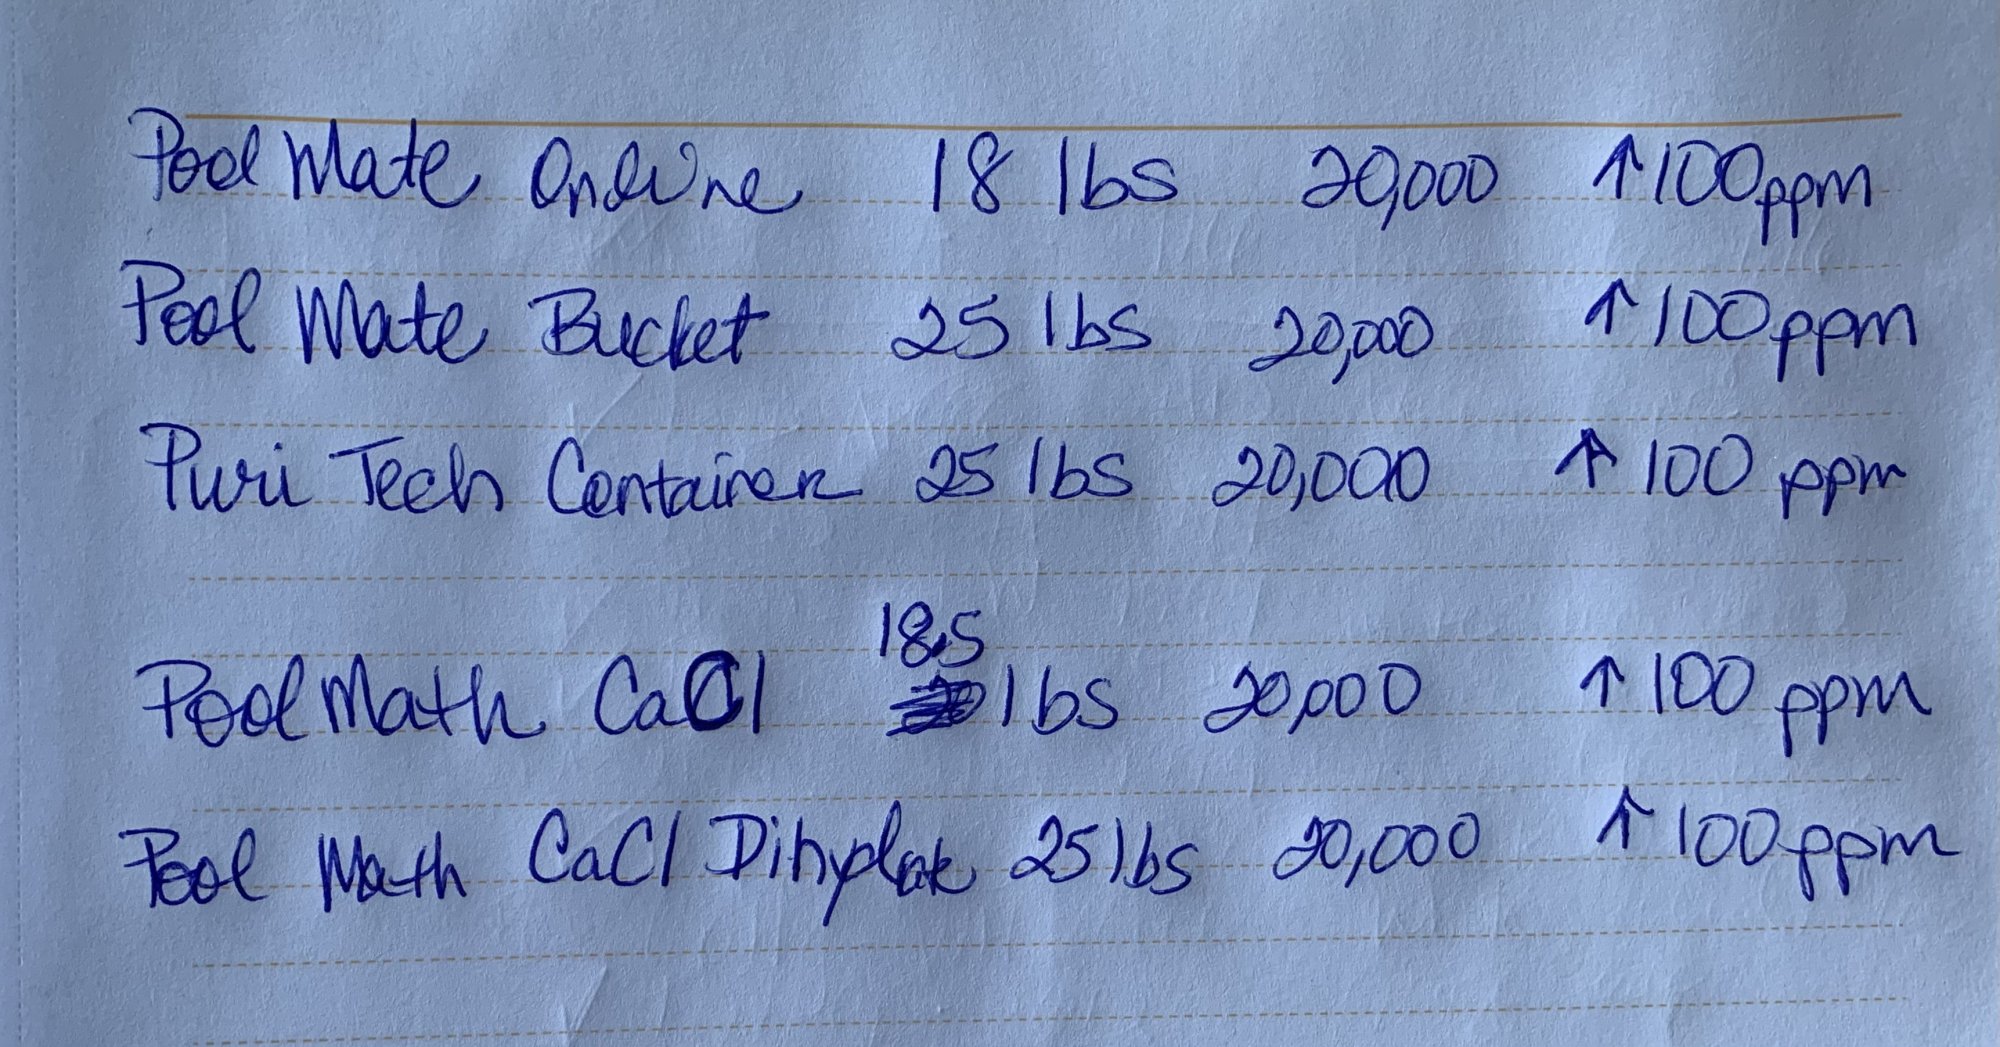 Pool Mate Online 18 lbs 20,000 ↑100ppm
Pool Mate Bucket 25 lbs 20,000 ↑100ppm
Puri Tech Container 25 lbs 20,000 ↑ 100 ppm
18.5
Pool Math CaCl lbs 20,000 ↑ 100 ppm
Pool Math CaCl 25 lbs 20,000 ↑ 100 ppm